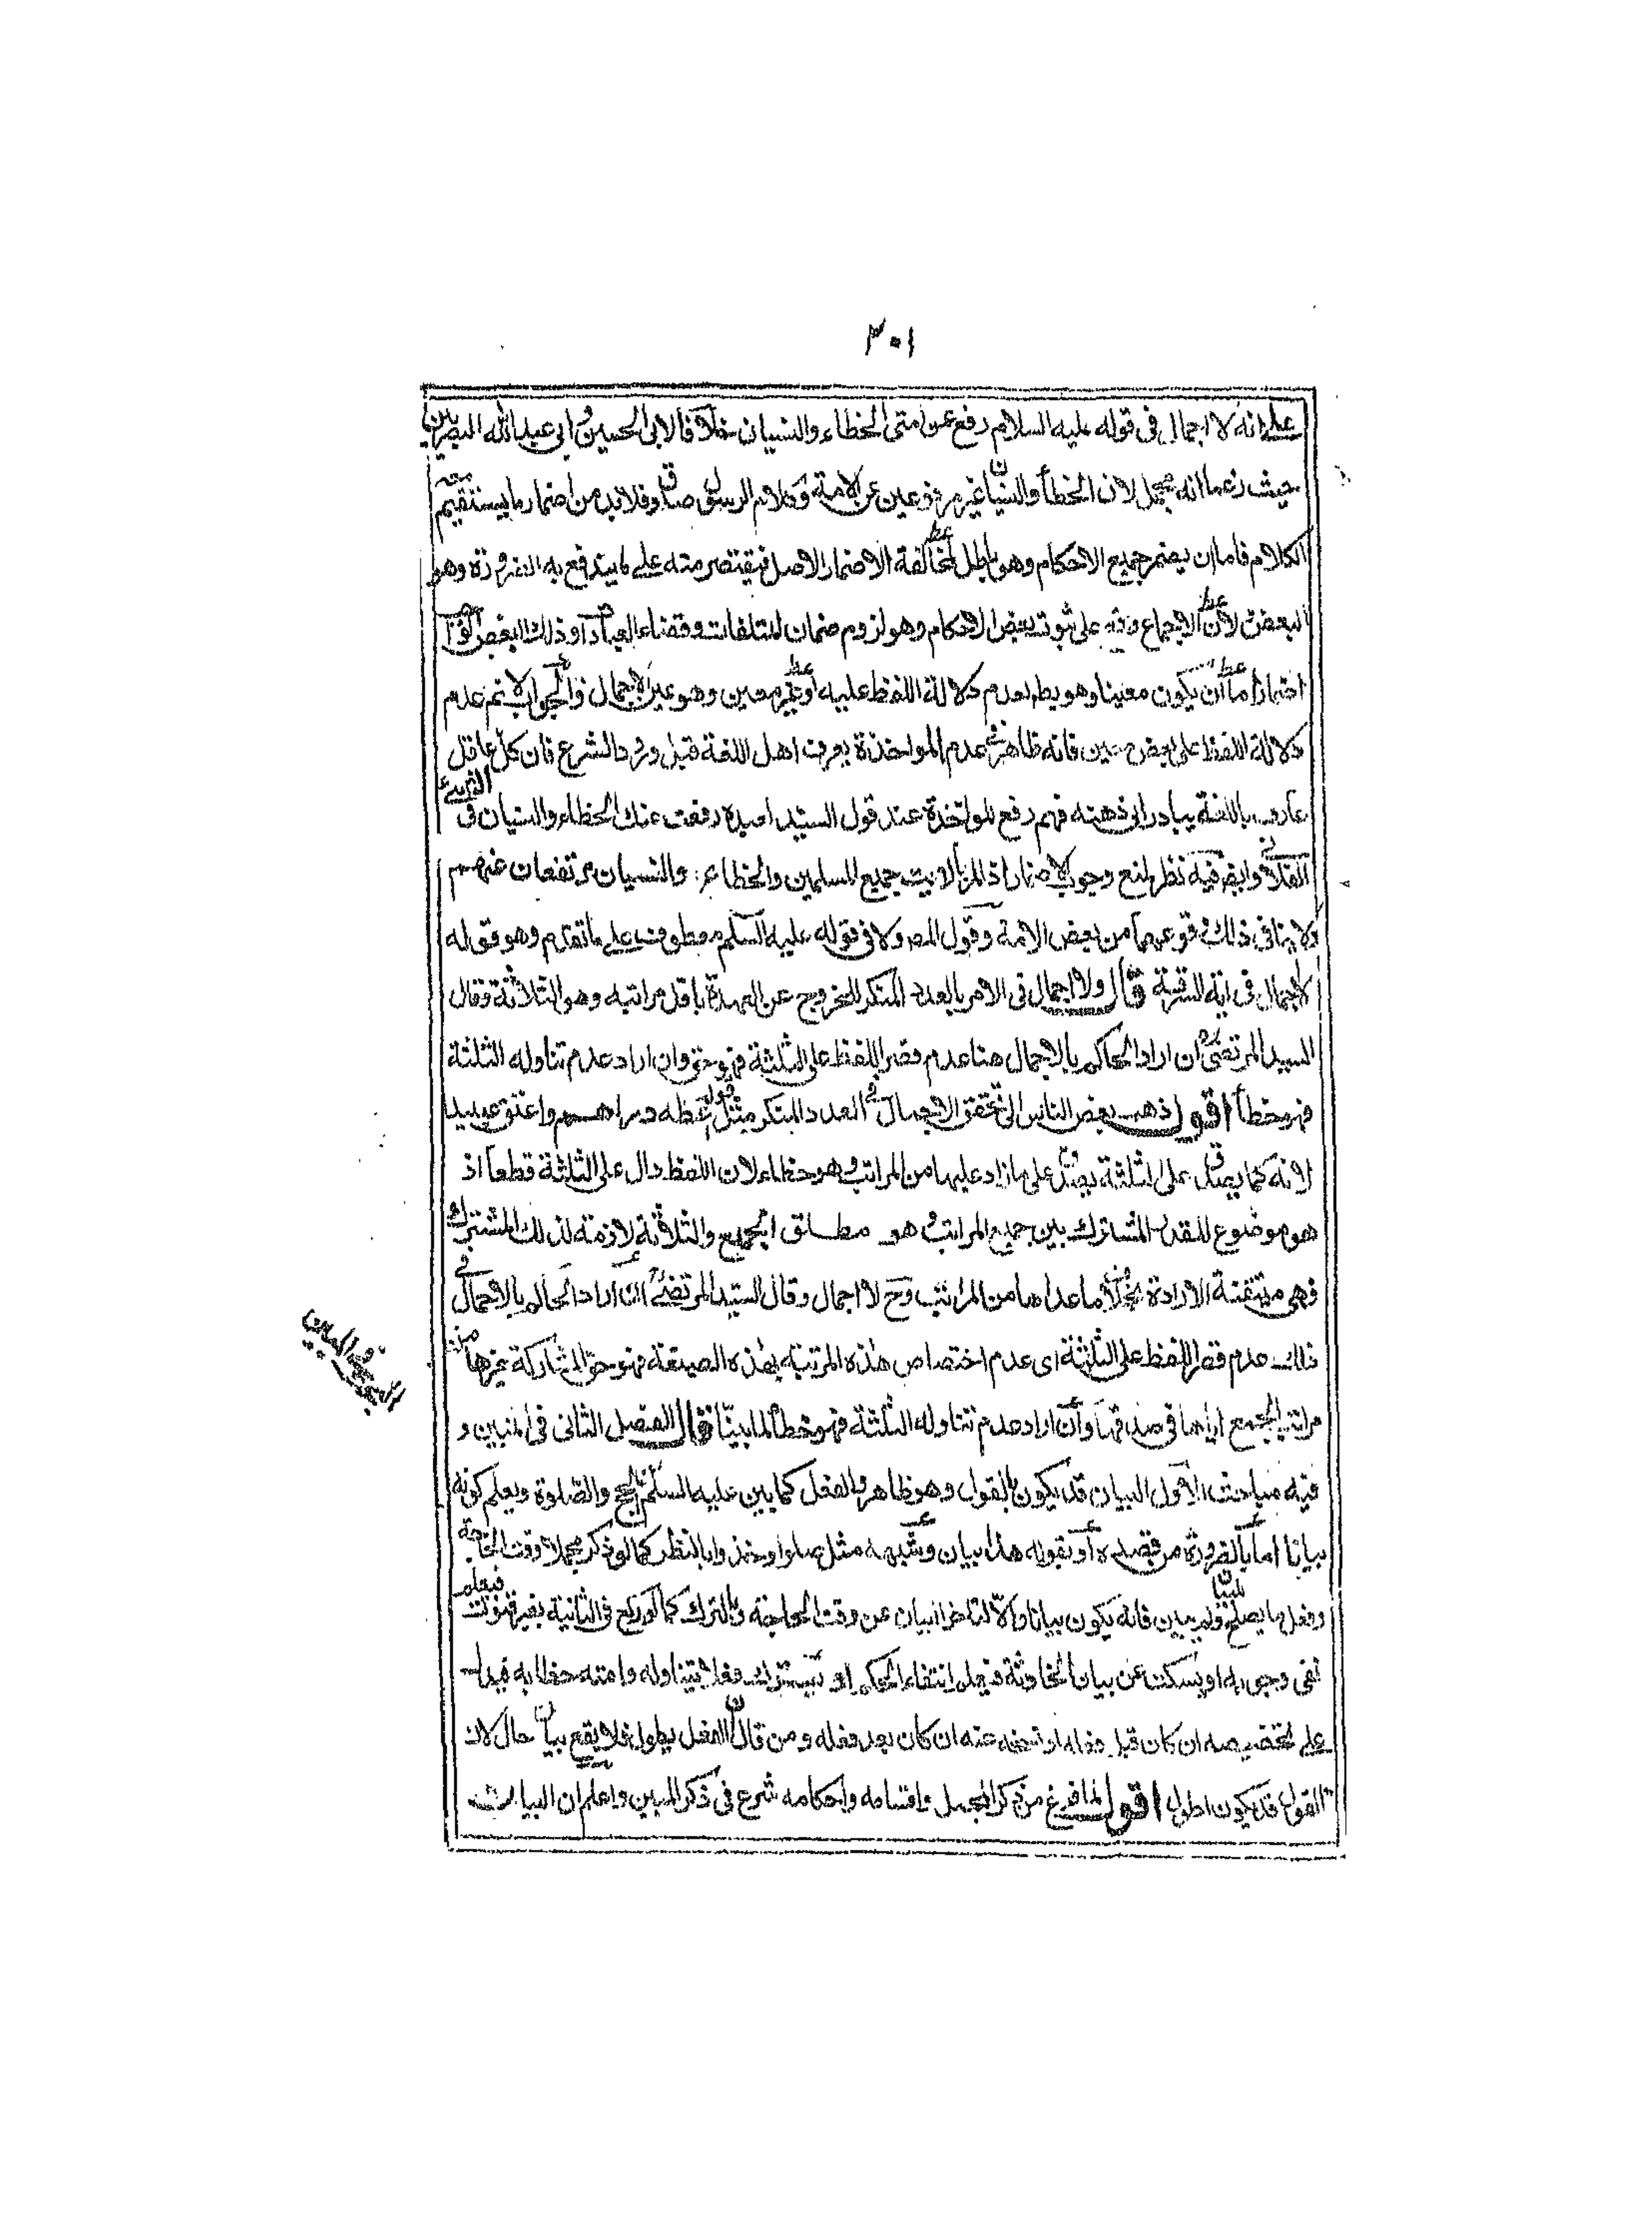 ٣٠١
على انه لا اجمال فى قوله عليه السلام رفع عن امتى الخطاء والنسيان خلافا لابى الحسين و ابى عبد الله البصريين
حيث زعما انه مجمل لان الخطأ والنسيان غير مرفوعين عن الامة وكلام الرسول صادق فلا بد من اضمار ما يستقيم معه
الكلام فاما ان يضمر جميع الاحكام وهو باطل لمخالفة الاضمار الاصل فيقتصر منه على ما يندفع به الضرورة وهو
البعض لان الاجماع على ثبوت بعض الاحكام وهو لزوم ضمان المتلفات وقضاء العبادات وذلك البعض
اما ان يكون معينا وهو بط لعدم دلالة اللفظ عليه او غير معين وهو عين الاجمال والجواب لا نم عدم
دلالة اللفظ على بعض معين فانه ظاهر فى عدم المواخذة بعرف اهل اللغة قبل ورود الشرع فان كل عاقل
عارف باللغة يبادر الى ذهنه فهم رفع المواخذة عند قول السيد لعبده رفعت عنك الخطاء والنسيان فى الشىء
الفلانى وايض فيه نظر لمنع وجوب الاضمار جميع المسلمين والخطاء والنسيان مرتفعان عنهم
ولا ينافى ذلك وقوعهما من بعض الامة وقول المص ولا فى قوله عليه السلم معطوف على ما تقدم وهو قوله
لا اجمال فى اية السرقة قال ولا اجمال فى الامر بالعدد المنكر للخروج عن العهدة باقل مراتبه وهو الثلاثة وقال
السيد المرتضى ان اراد الحاكم بالاجمال هنا عدم قصر اللفظ على الثلثة فهو حق وان اراد عدم تناوله الثلثة
فهو خطأ اقول ذهب بعض الناس الى تحقق الاجمال فى العدد المنكر مثل قوله اعطه دراهم واعتق عبيدا
لانه كما يصدق على الثلثة يصدق على ما زاد عليها من المراتب وهو خطاء لان اللفظ دال على الثلثة قطعا اذ
هو موضوع للقدر المشترك بين جميع المراتب و هو مطلق الجمع والثلاثة لازمة لذلك المشترك
فهى متيقنة الارادة بخلاف ما عداها من المراتب وح لا اجمال وقال السيد المرتضى ان اراد الحاكم بالاجمال فى
ذلك عدم قصر اللفظ على الثلثة اى عدم اختصاص هذه المرتبة بهذه الصيغة فهو حق لمشاركة غيرها من
مراتب الجمع اياها فى صدقها وان اراد عدم تناوله الثلثة فهو خطأ لما بينا قال الفصل الثانى فى المبين و
فيه مباحث الاول البيان قد يكون بالقول وهو ظاهر وبالفعل كما بين عليه السلم الحج والصلوة ويعلم كونه
بيانا اما بالضرورة من قصده او بقوله هذا بيان وشبهه مثل صلوا وخذوا بالنظر كما لو ذكر مجملا وقت الحاجة
وفعل ما يصلح بيانا ولم يبين فانه يكون بيانا والا لتاخر البيان عن وقت الحاجة وبالترك كما لو ركع فى الثانية بغير قنوت فيعلم
نفى وجوبه او يسكت عن بيان الحادثة فيعلم انتفاء الحكم او يترك فعلا يتناوله وامته خطابه فيدل
على تخصيصه ان كان قبل فعله او نسخه عنه ان كان بعد فعله ومن قال الفعل يطول فلا يقع بيانا حال لان
القول قد يكون اطول اقول لما فرغ من ذكر المجمل واقسامه واحكامه شرع فى ذكر المبين واعلم ان البيان
البحث فى المبين